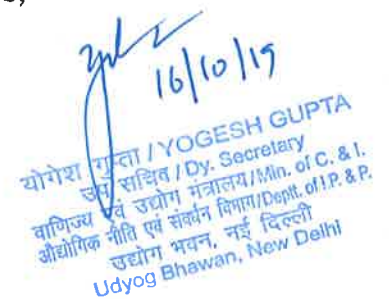 16/10/19
योगेश गुप्ता / YOGESH GUPTA
उप सचिव / Dy. Secretary
वाणिज्य एवं उद्योग मंत्रालय/Min. of C. & I.
औद्योगिक नीति एवं संवर्धन विभाग/Deptt. of I.P. & P.
उद्योग भवन, नई दिल्ली
Udyog Bhawan, New Delhi